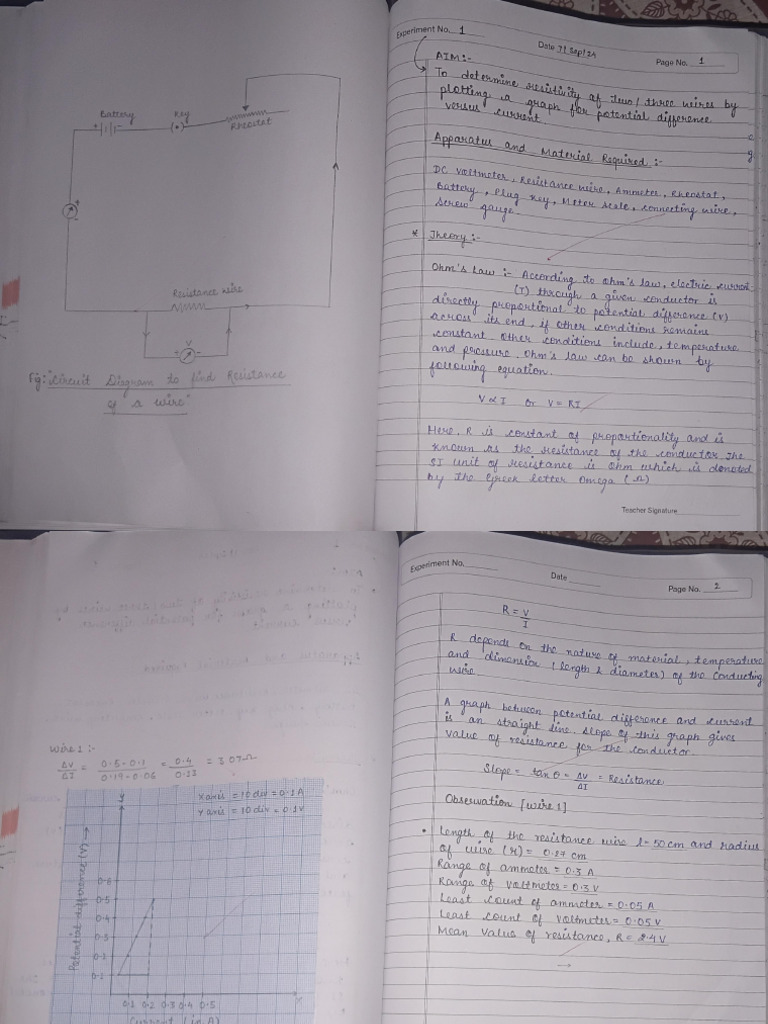 Battery
Key
Rheostat
Resistance wire
V
Fig: "Circuit Diagram to find Resistance
of a wire"
Experiment No. 1
Date 7/Sep/24
Page No. 1
AIM:-
To determine resistivity of two/three wires by
plotting a graph for potential difference
versus current
Apparatus and Material Required :-
DC Voltmeter, Resistance wire, Ammeter, Rheostat,
Battery, Plug Key, Meter scale, connecting wire,
Screw gauge.
* Theory :-
Ohm's Law :- According to ohm's law, electric current
(I) through a given conductor is
directly proportional to potential difference (V)
across its end, if other conditions remains
constant other conditions include, temperature
and pressure. Ohm's law can be shown by
following equation.
V ∝ I or V = RI
Here, R is constant of proportionality and is
known as the resistance of the conductor The
SI unit of resistance is Ohm which is denoted
by The Greek letter Omega (Ω)
Teacher Signature
Wire 1 :-
ΔV/ΔI = 0.5-0.1/0.19-0.06 = 0.4/0.13 = 3.07Ω
x axis = 10 div = 0.1 A
Y axis = 10 div = 0.1 V
Potential difference (V) →
0.6
0.5
0.4
0.3
0.1
0.1
0.1 0.2 0.3 0.4 0.5
x
Current (in A)
Experiment No.
Date
Page No. 2
R = V/I
R depends on the nature of material, temperature
and dimension (length & diameter) of the conducting
wire.
A graph between potential difference and current
is an straight line. Slope of this graph gives
value of resistance for the conductor.
Slope = tan θ = ΔV/ΔI = Resistance
Observation [Wire 1]
• Length of the resistance wire l = 50 cm and radius
of wire (r) = 0.27 cm
Range of ammeter = 0.3 A
Range of voltmeter = 0.3 V
Least count of ammeter = 0.05 A
Least count of voltmeter = 0.05 V
Mean value of resistance, R = 2.4 V